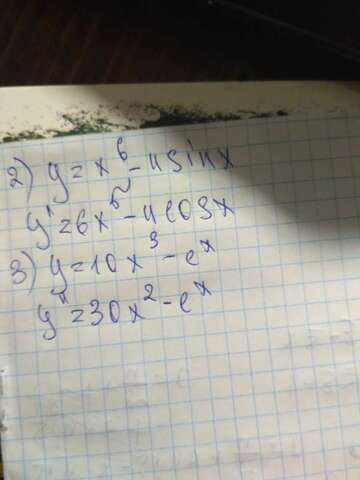 2) y = x⁶ - 4sinx
y' = 6x⁵ - 4cosx
3) y = 10x³ - eˣ
y' = 30x² - eˣ